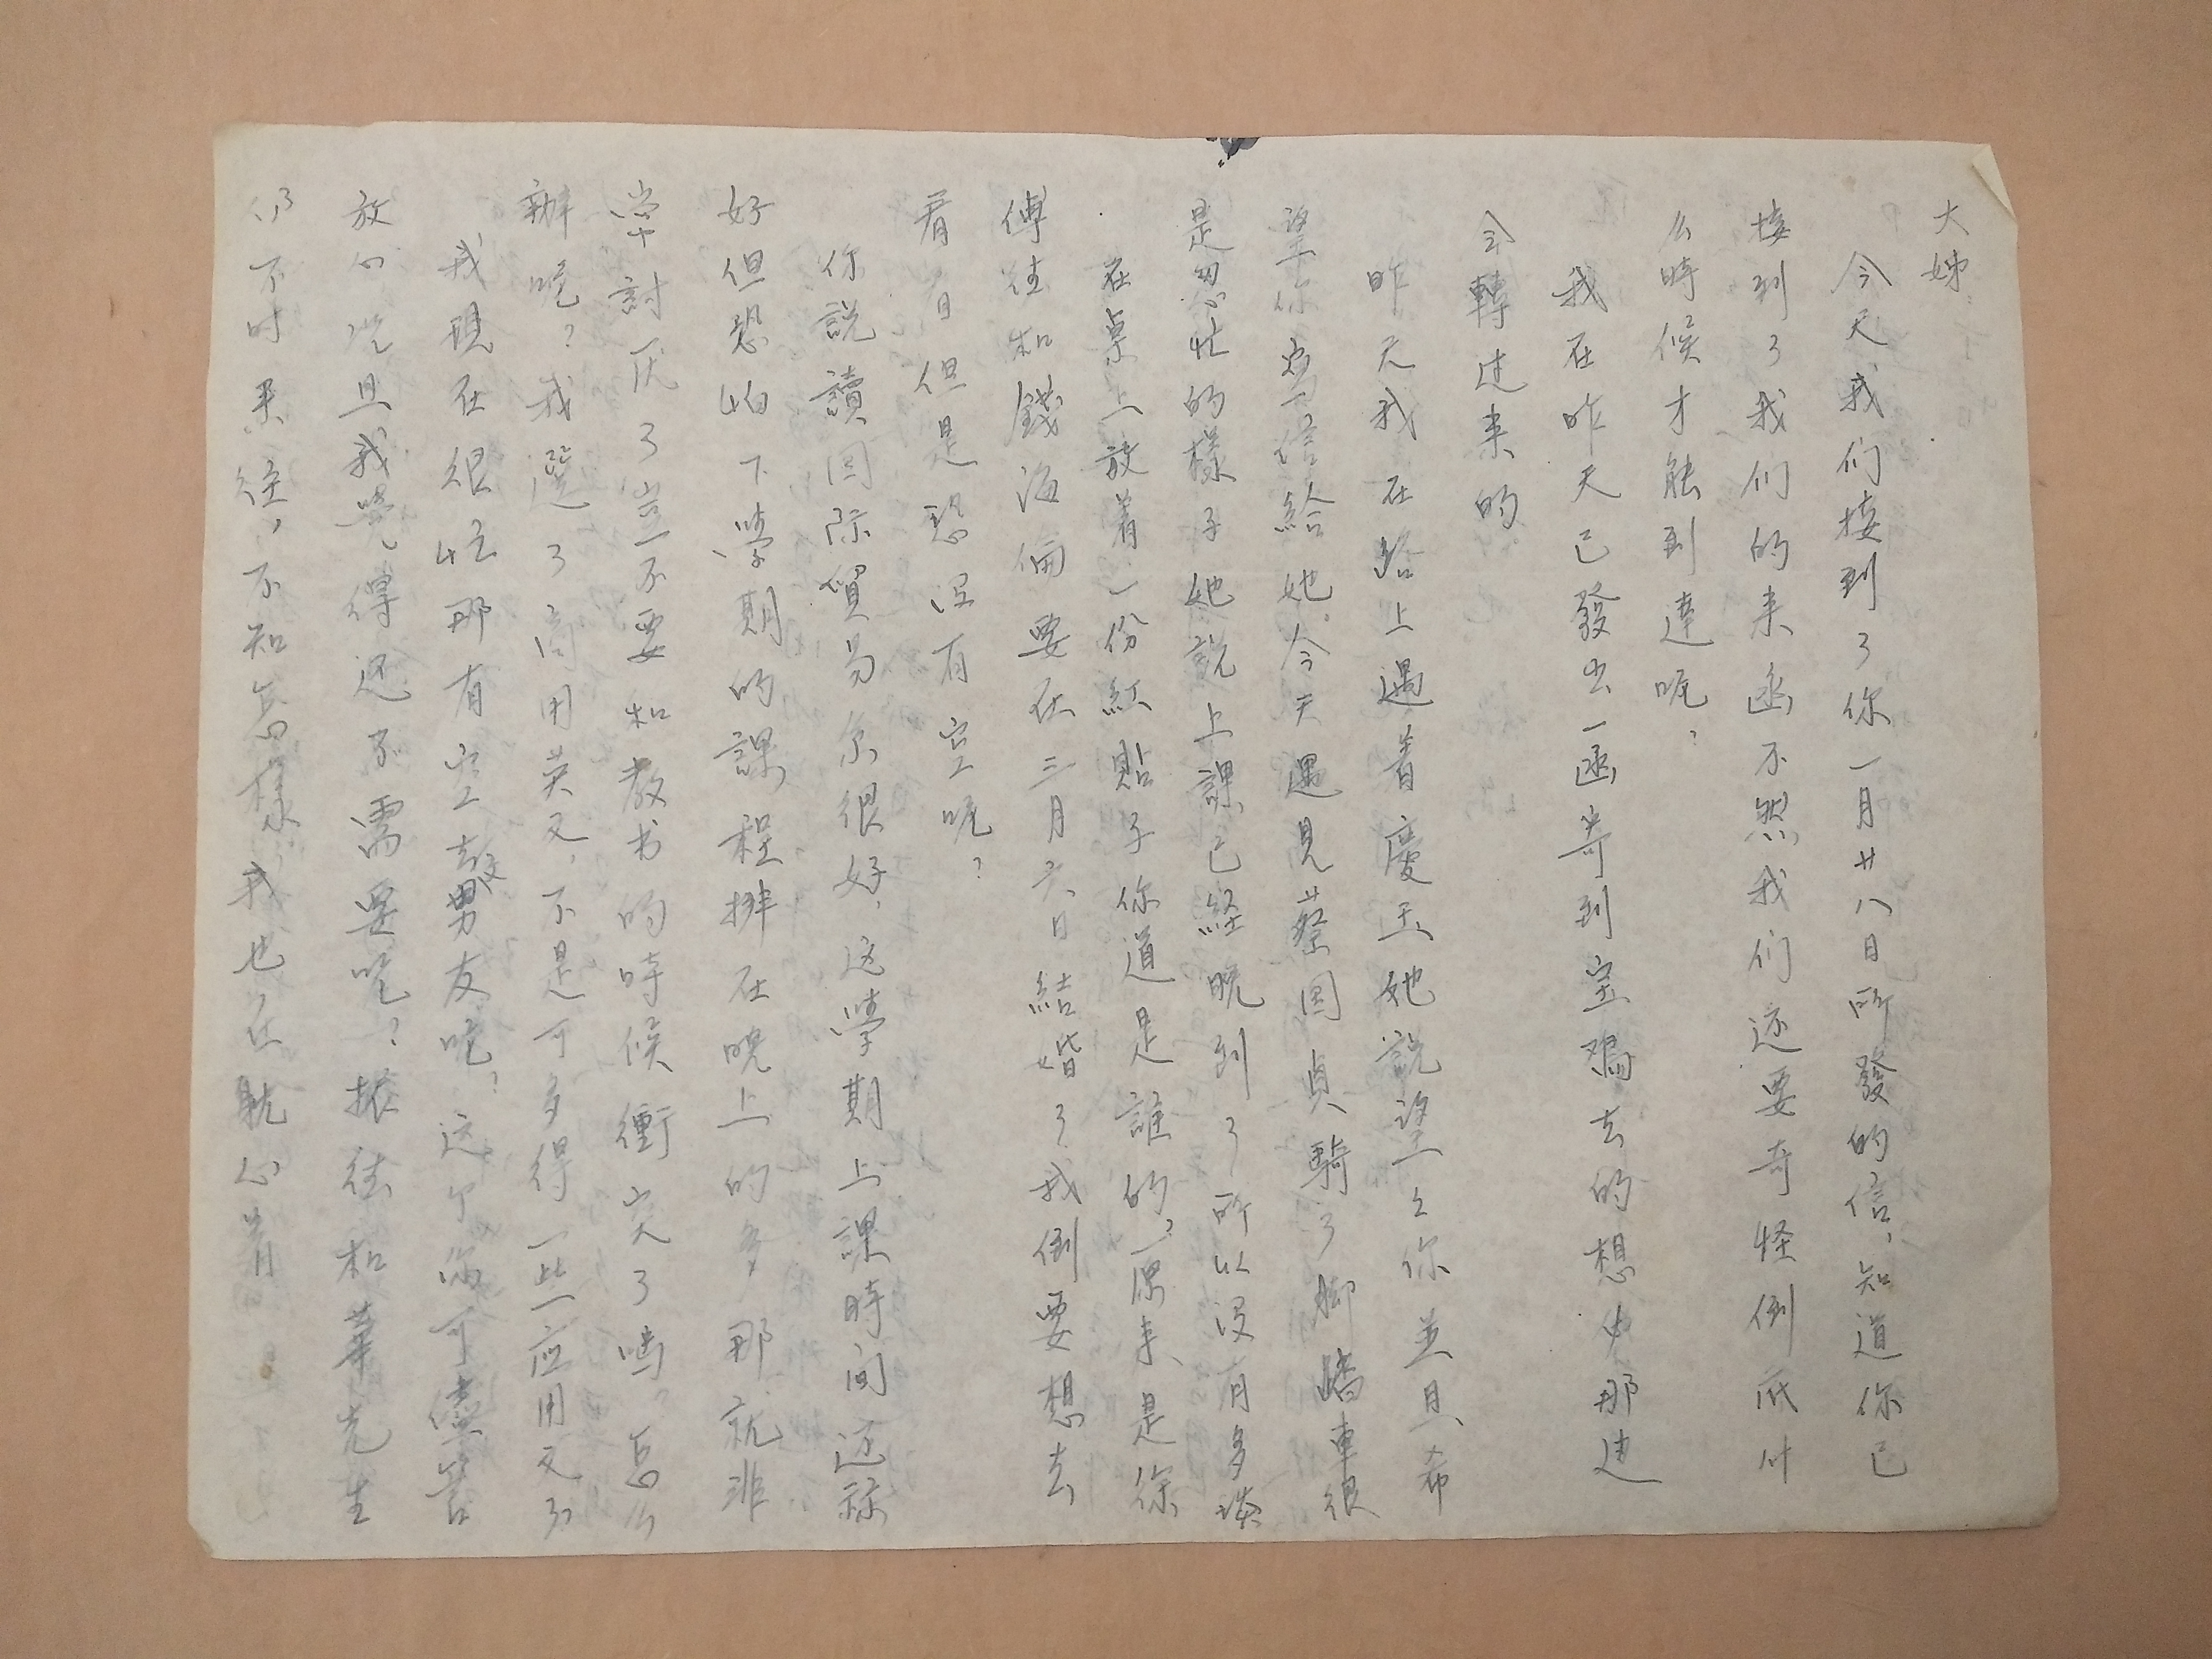 大姊：
今天我们接到了你一月廿八日所發的信，知道你已
接到了我们的来函不然我们还要奇怪倒底什
么時候才能到達呢？
我在昨天已發出一函寄到宝鸡去的想必那边
会轉过来的
昨天我在路上遇着慶玉她說望望你並且希
望你寫信給她。今天遇見蔡国貞騎了脚踏車很
是匆忙的樣子她說上課已経晚到了所以没有多談
在桌上放着一份紅貼子你道是誰的？原来是徐
傅佳和錢海倫要在三月六日結婚了我倒要想去
看看但是恐没有空呢？
你說讀国际貿易系很好，这學期上課時间还称
好但恐怕下學期的課程排在晚上的多那就非
常討厌了豈不要和教书的時候衝突了嗎。怎么
辦呢？我選了商用英文，不是可多得一些应用文了
我現在很忙那有空去交男友呢？这个你可儘管
放心况且我覺得还不需要呢？振佳和華先生
仍不时来往，不知怎樣，我也在躭心着